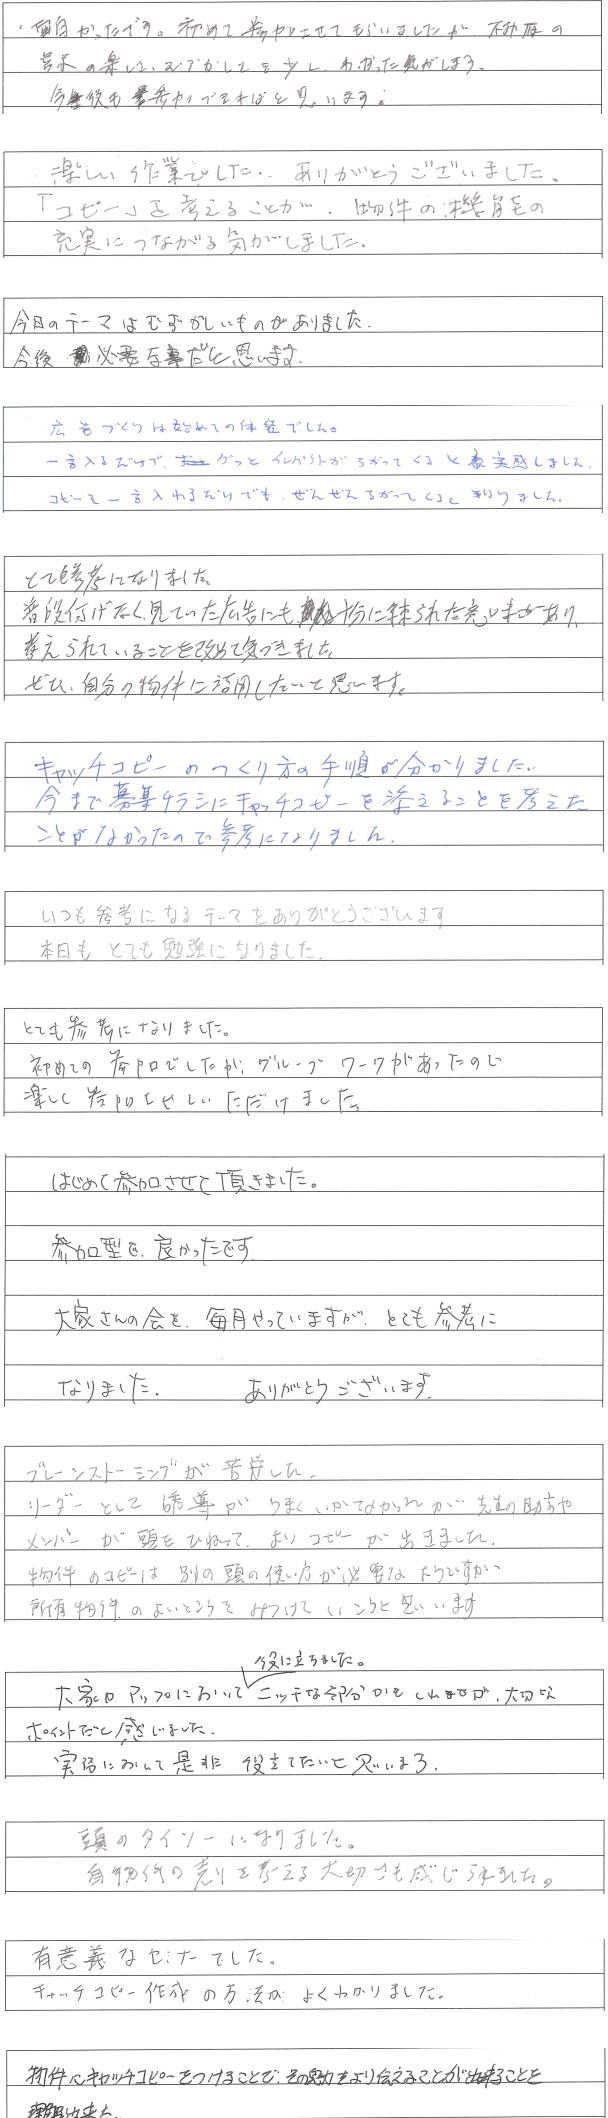 面白かったです。初めて参加させてもらいましたが 不動産の
楽しい むずかしさを少し わかった気がします。
今後も 参加できればと思います。
楽しい作業でした。ありがとうございました。
「コピー」を考えることが、物件の機能の
充実につながる気がしました。
今日のテーマはむずかしいものがありました。
今後 必要な事だと思います。
広告づくりは始めての体験でした。
一言入るだけで、グッと インパクトがちがってくると 実感しました。
コピーを一言入れるだけでも、ぜんぜんちがってくると 判りました。
とても参考になりました。
普段何げなく見ていた広告にも 十分に練られた意味があり、
考えられていることを改めて気づきました。
ぜひ、自分の物件に活用したいと思います。
キャッチコピーのつくり方の手順が分かりました。
今まで募集チラシにキャッチコピーを添えることを考えた
ことがなかったので参考になりました。
いつも参考になるテーマをありがとうございます
本日も とても勉強になりました。
とても参考になりました。
初めての参加でしたが、グループワークがあったので
楽しく参加させていただけました。
はじめて参加させて頂きました。
参加型で、良かったです。
大家さんの会を、毎月やっていますが、とても参考に
なりました。 ありがとうございます。
ブレーンストーミングが苦労した。
リーダーとして誘導がうまくいかなかったが 先生の助言や
メンバーが頭をひねって、よいコピーが出きました。
物件のコピーは 別の頭の使い方が必要なようですが
所有物件のよいところをみつけていこうと思います
役に立ちました。
大家力アップにおいて ニッチな部分かもしれませんが、大切な
ポイントだと感じました。
実務において是非 役立てたいと思います。
頭のタイソーになりました。
自物件の売りを考える大切さも感じられました。
有意義なセミナーでした。
キャッチコピー作成の方法がよくわかりました。
物件にキャッチコピーをつけることで、その魅力をより伝えることが出来ることを
理解出来た。